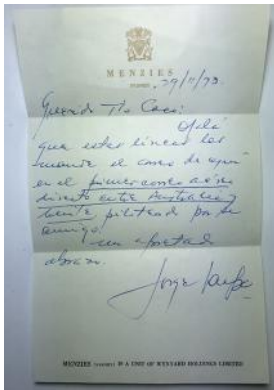 MENZIES
SYDNEY
29/11/73.
Querido Tío Coco:
Ojalá
que estas líneas las
mande el correo de aquí
en el primer correo aéreo
directo entre Australia y
piloteado por su
amigo.
un apretado
abrazo.
Jorge
MENZIES (SYDNEY) IS A UNIT OF WYNYARD HOLDINGS LIMITED